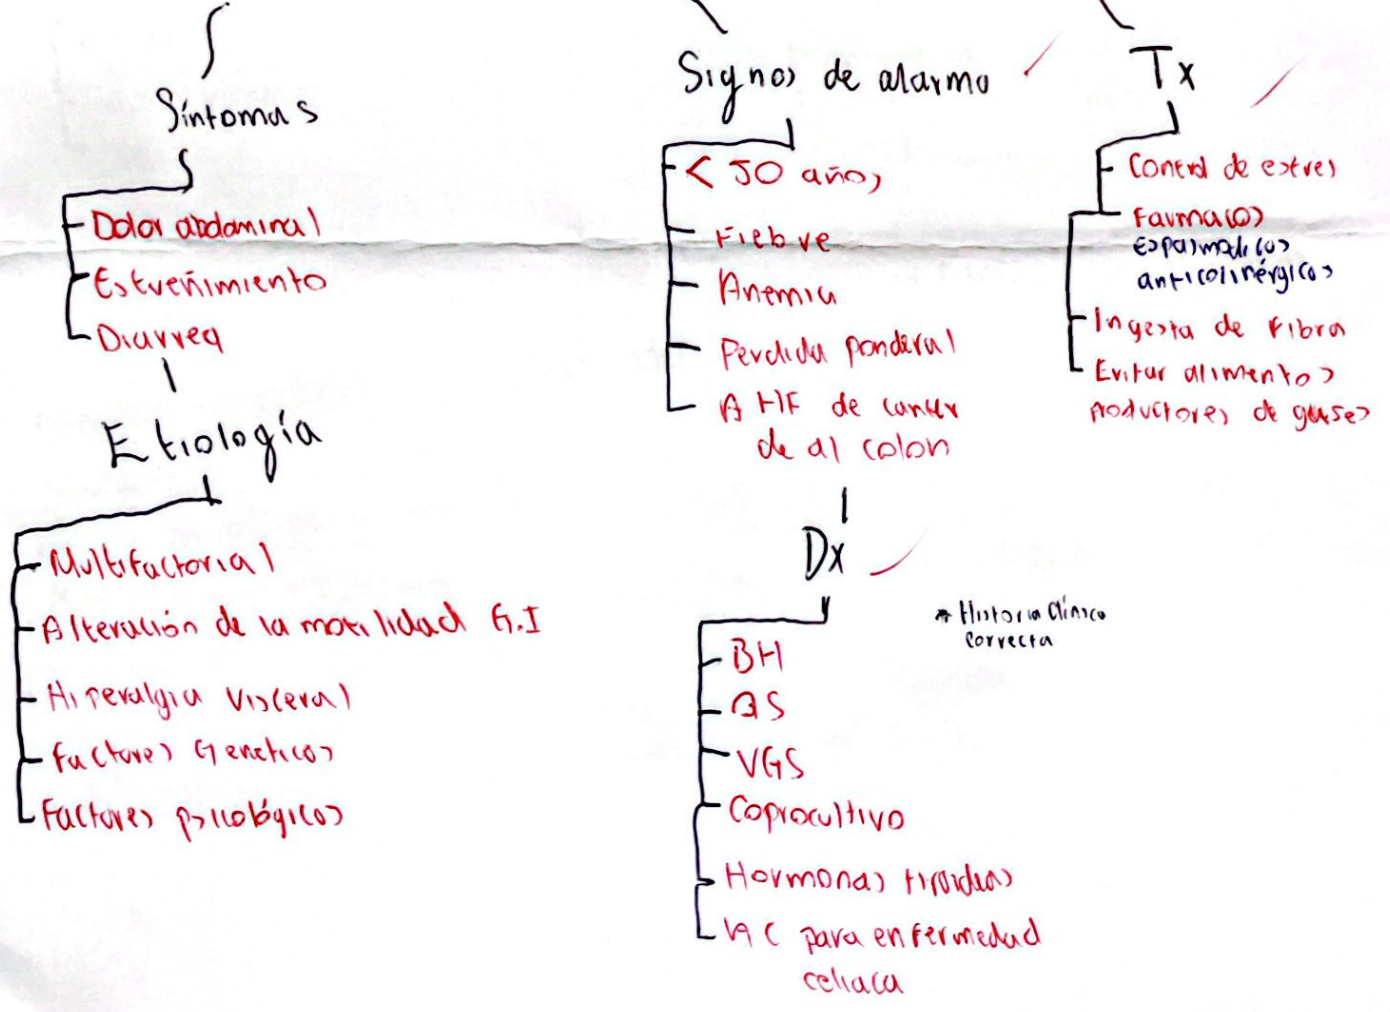 Síntomas
Dolor abdominal
Estreñimiento
Diarrea
Etiología
Multifactorial
Alteración de la motilidad G.I
Hiperalgia visceral
Factores Geneticos
Factores psicológicos
Signos de alarma
< 50 años
Fiebre
Anemia
Perdida ponderal
AHF de cancer
de al colon
Dx
* Historia Clínica
correcta
BH
QS
VGS
Coprocultivo
Hormonas tiroideas
AC para enfermedad
celiaca
Tx
Control de estres
Farmacos
Espasmodicos
anticolinérgicos
Ingesta de Fibra
Evitar alimentos
productores de gases